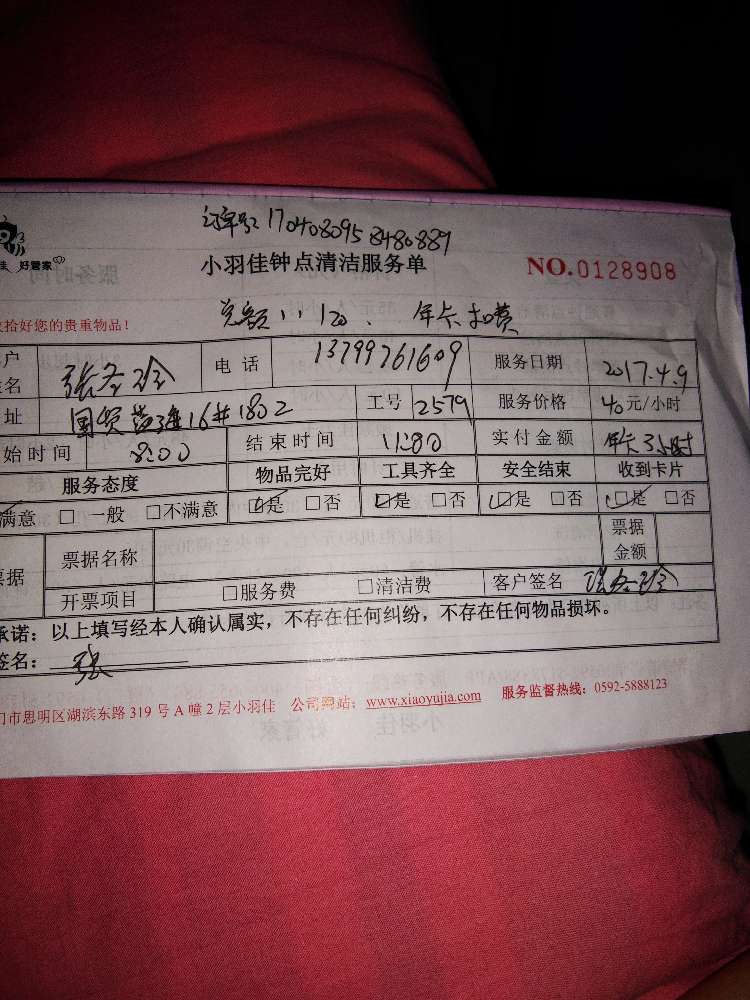 订单号: 1704080958480889
好管家
小羽佳钟点清洁服务单
NO.0128908
拾好您的贵重物品!
总额: 120、 年卡扣费
户 名 张 电话 13799761609 服务日期 2017.4.9
址 国贸 16#1802 工号 2579 服务价格 40元/小时
始时间 8:00 结束时间 11:00 实付金额 年卡3小时
服务态度 物品完好 工具齐全 安全结束 收到卡片
满意 □一般 □不满意 ☑是 □否 ☑是 □否 ☑是 □否 ☑是 □否
据 票据名称 票据金额
开票项目 □服务费 □清洁费 客户签名 张
承诺:以上填写经本人确认属实,不存在任何纠纷,不存在任何物品损坏。
签名: 张
门市思明区湖滨东路 319 号 A 幢 2 层小羽佳 公司网站:www.xiaoyujia.com 服务监督热线:0592-5888123